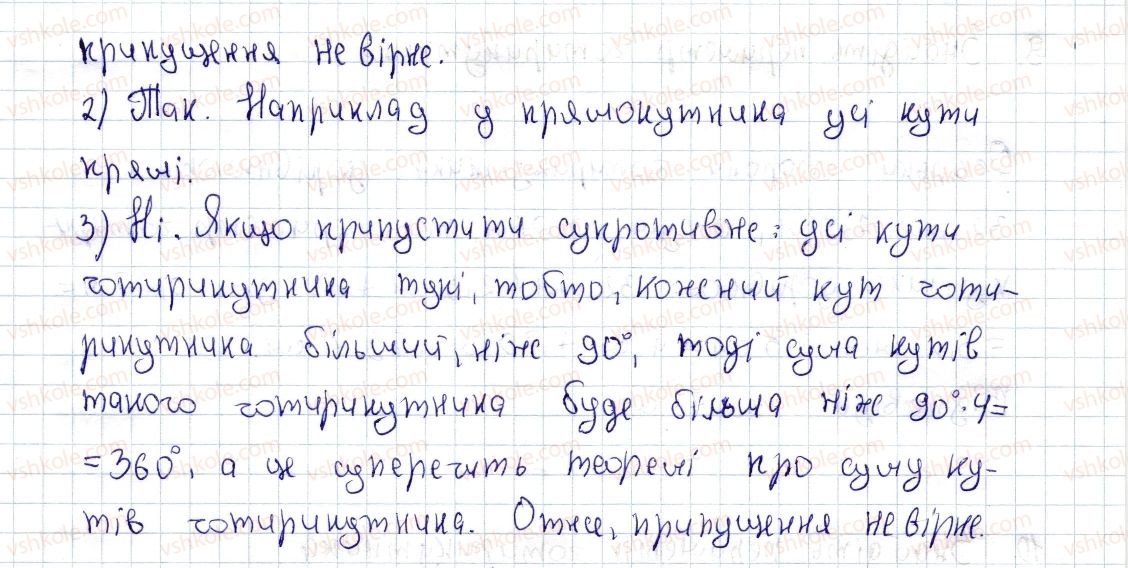 припущення не вірне.
2) Так. Наприклад у прямокутника усі кути
прямі.
3) Ні. Якщо припустити супротивне: усі кути
чотирикутника тупі, тобто, кожний кут чоти-
рикутника більший, ніж 90°, тоді сума кутів
такого чотирикутника буде більша ніж 90°·4=
=360°, а це суперечить теоремі про суму ку-
тів чотирикутника. Отже, припущення не вірне.